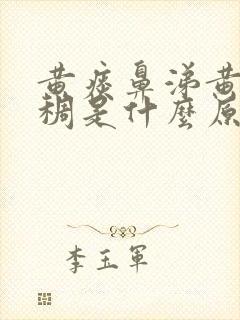 黄痰鼻涕黄
稠是什麼原
李玉軍